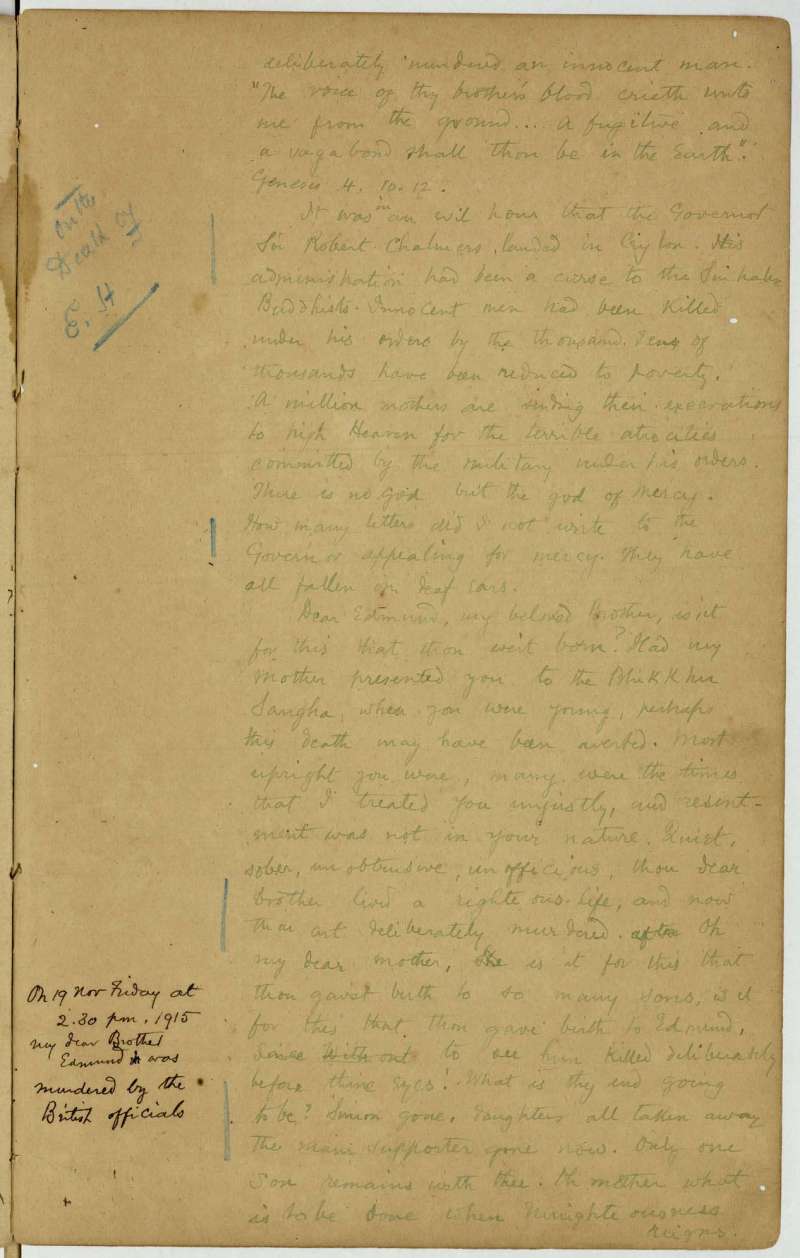 deliberately murdered an innocent man.
"The voice of thy brother's blood crieth unto
me from the ground... A fugitive and
a vagabond shall thou be in the Earth".
Genesis 4. 10. 12.
On the
Death of
E. H
It was in an evil hour that the Governor
Sir Robert Chalmers landed in Ceylon. His
administration had been a curse to the Sinhalese
Buddhists. Innocent men had been killed
under his orders by the thousand. Tens of
thousands have been reduced to poverty.
A million mothers are sending their execrations
to high Heaven for the terrible atrocities
committed by the military under his orders.
There is no god but the god of Mercy.
How many letters did I not write to the
Governor appealing for mercy. They have
all fallen on deaf ears.
Dear Edmund, my beloved Brother, is it
for this that thou wert born? Had my
Mother presented you to the Bhikkhu
Sangha, when you were young, perhaps
this death may have been averted. Most
upright you were, many were the times
that I treated you unjustly, and resent-
ment was not in your nature. Quiet,
sober, unobtrusive, unofficious, thou dear
brother lived a righteous life, and now
thou art deliberately murdered. after Oh
my dear mother, is it for this that
thou gavest birth to so many sons, is it
for this that thou gave birth to Edmund,
to see him killed deliberately
before thine eyes! What is thy end going
to be? Simon gone, daughters all taken away
the main supporter gone now. Only one
Son remains with thee. Oh mother what
is to be done when Unrighteousness
reigns.
On 19 Nov Friday at
2.30 pm. 1915
my dear Brother
Edmund was
murdered by the
British officials